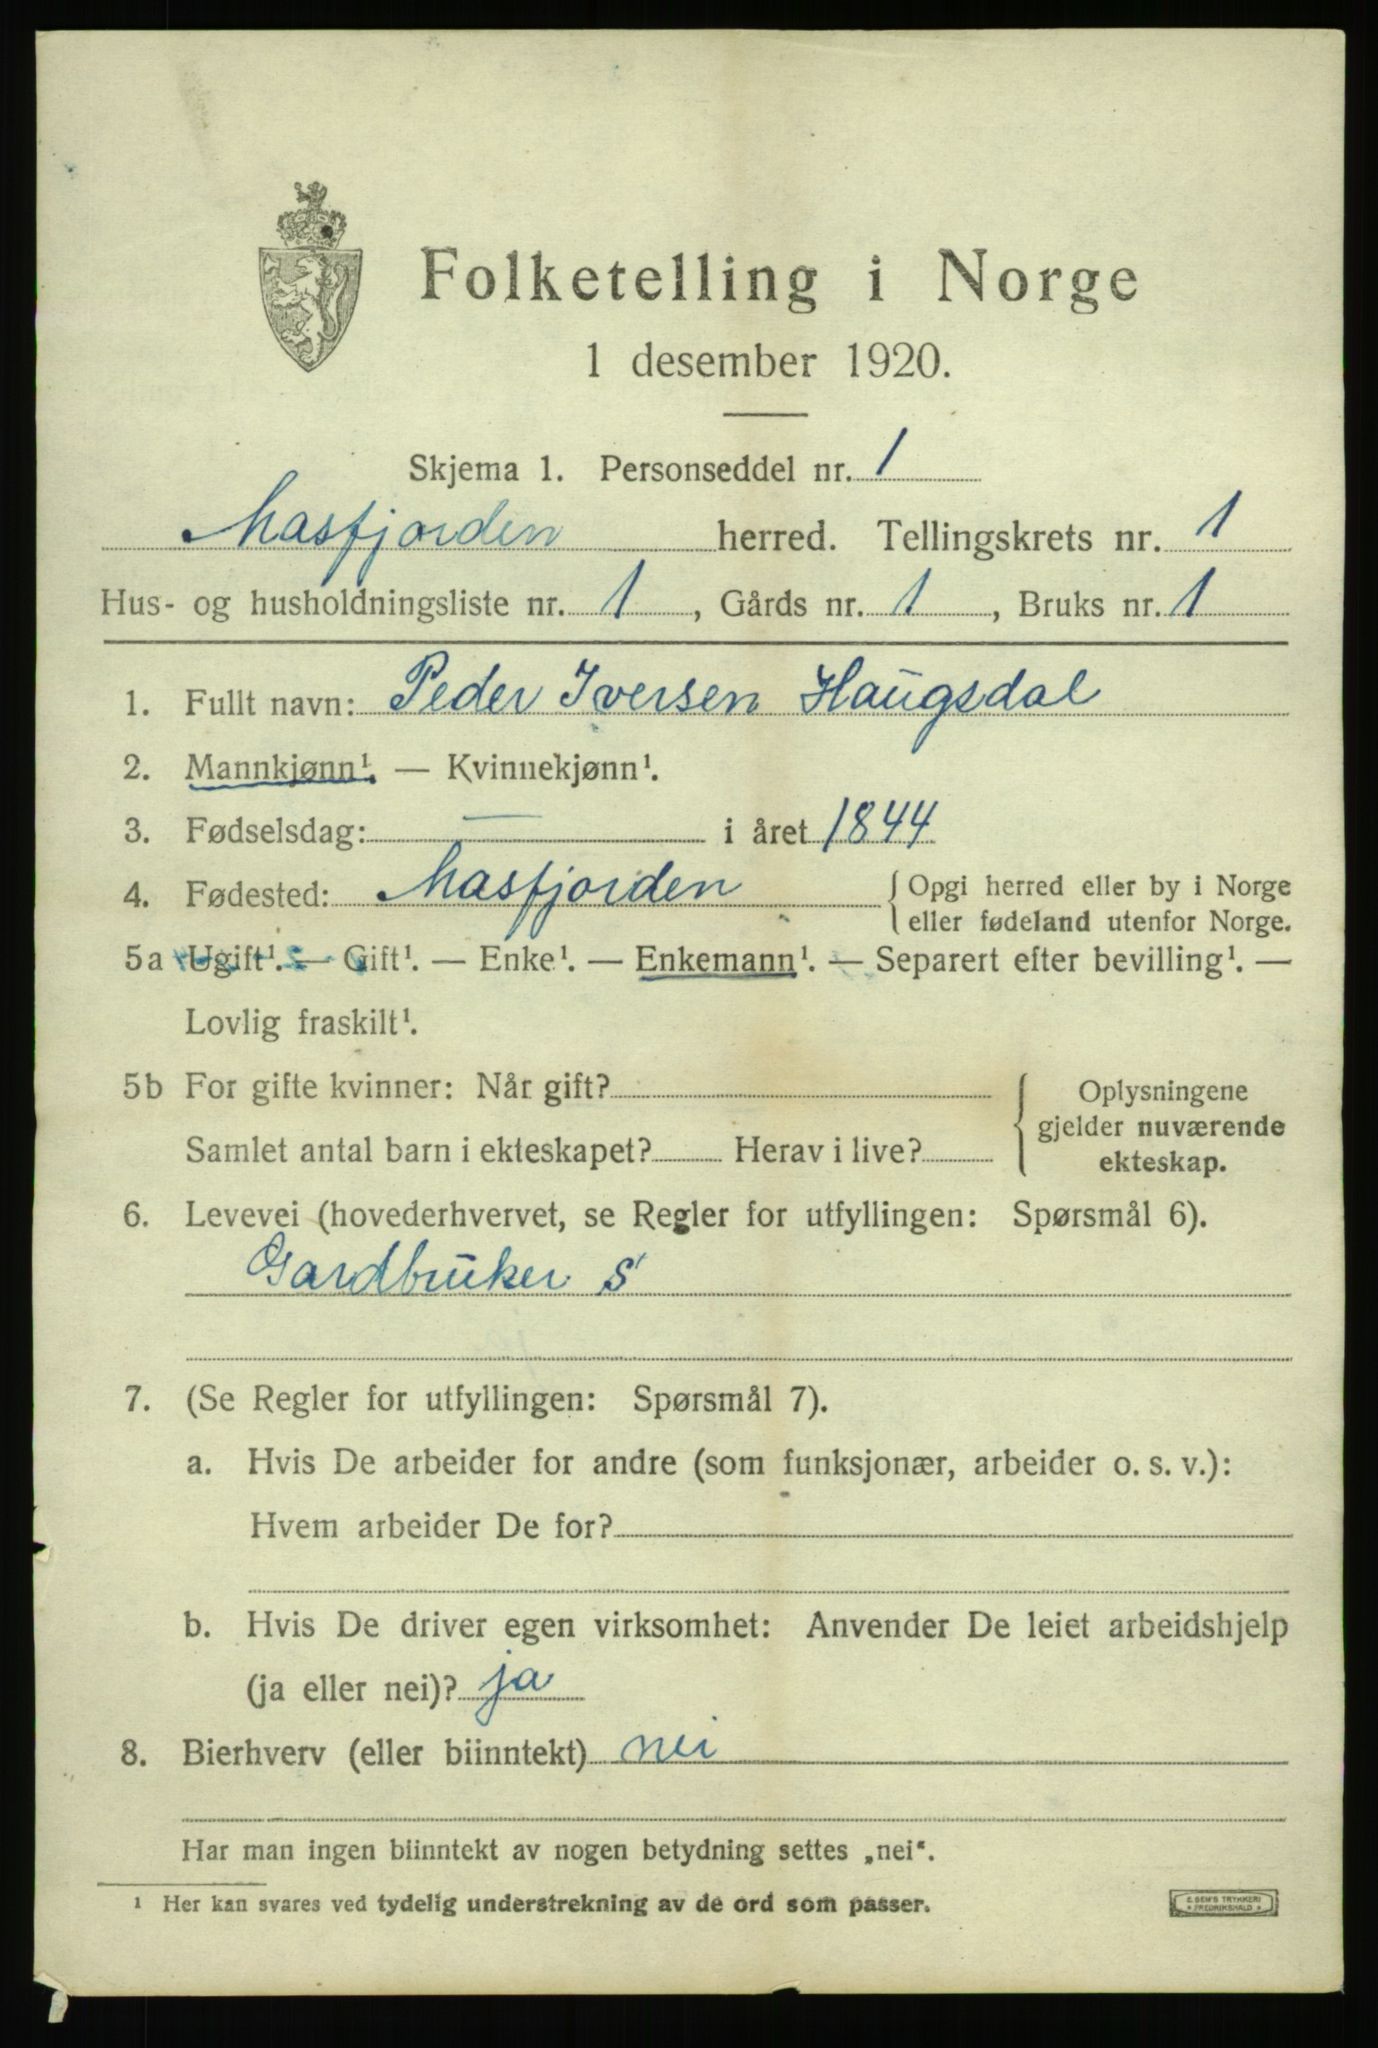 Folketelling i Norge
1 desember 1920.
Skjema 1. Personseddel nr. 1
Masfjorden herred. Tellingskrets nr. 1
Hus- og husholdningsliste nr. 1, Gårds nr. 1, Bruks nr. 1
1. Fullt navn: Peder Iversen Haugsdal
2. Mannkjønn¹. — Kvinnekjønn¹.
3. Fødselsdag: — i året 1844
4. Fødested: Masfjorden { Opgi herred eller by i Norge
eller fødeland utenfor Norge.
5a Ugift¹. — Gift¹. — Enke¹. — Enkemann¹. — Separert efter bevilling¹. —
Lovlig fraskilt¹.
5b For gifte kvinner: Når gift? Oplysningene
gjelder nuværende
Samlet antal barn i ekteskapet? Herav i live? ekteskap.
6. Levevei (hovederhvervet, se Regler for utfyllingen: Spørsmål 6).
Gardbruker s
7. (Se Regler for utfyllingen: Spørsmål 7).
a. Hvis De arbeider for andre (som funksjonær, arbeider o. s. v.):
Hvem arbeider De for?
b. Hvis De driver egen virksomhet: Anvender De leiet arbeidshjelp
(ja eller nei)? ja
8. Bierhverv (eller biinntekt) nei
Har man ingen biinntekt av nogen betydning settes „nei“.
¹ Her kan svares ved tydelig understrekning av de ord som passer.
E. SEM'S TRYKKERI
* FREDRIKSHALD *